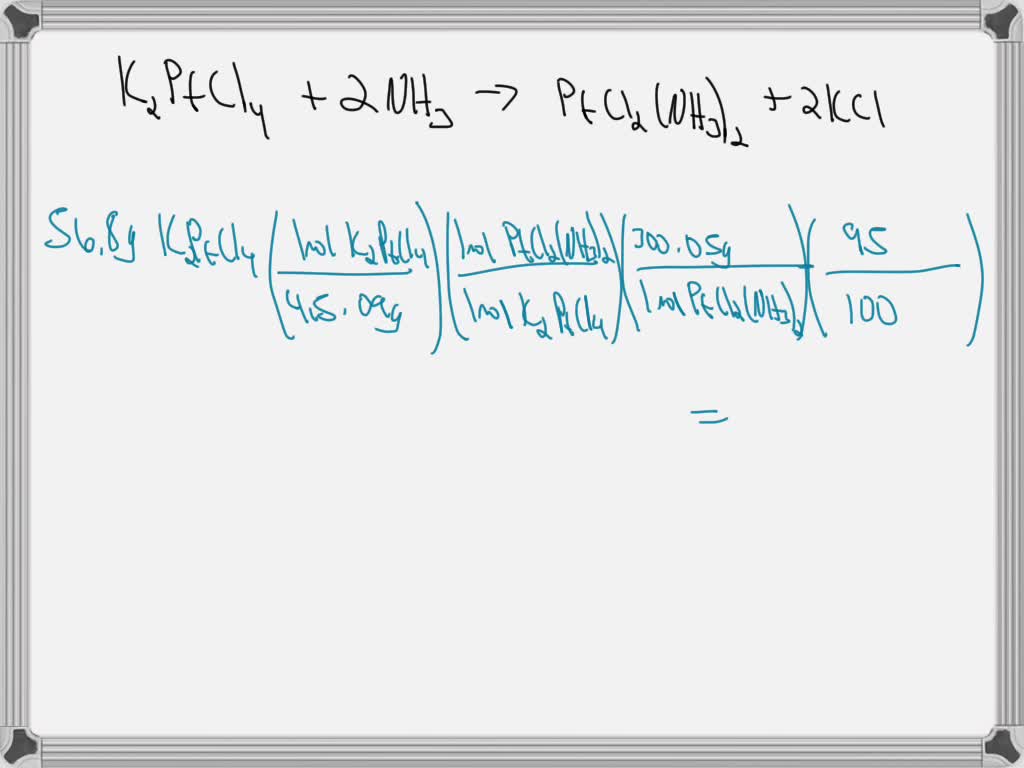 K₂PtCl₄ + 2NH₃ → PtCl₂(NH₃)₂ + 2KCl
56.8g K₂PtCl₄ (1mol K₂PtCl₄ / 415.09g) (1mol PtCl₂(NH₃)₂ / 1mol K₂PtCl₄) (300.05g / 1mol PtCl₂(NH₃)₂) (95 / 100)
=